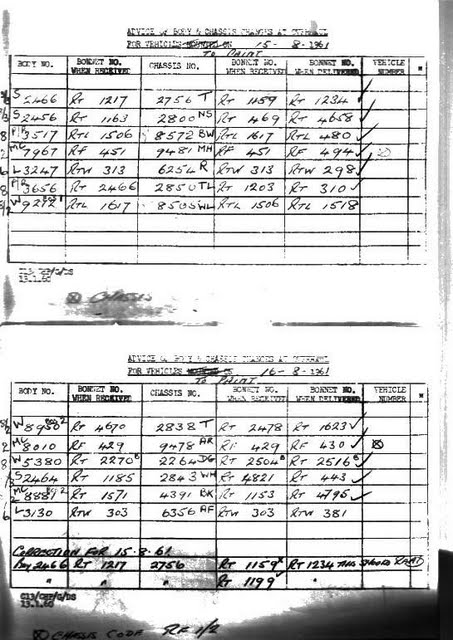 ADVICE OF BODY & CHASSIS CHANGES AT OVERHAUL
FOR VEHICLES ON 15 - 8 - 1961
TO PAINT
BODY NO. BONNET NO. WHEN RECEIVED CHASSIS NO. BONNET NO. WHEN RECEIVED BONNET NO. WHEN DELIVERED VEHICLE NUMBER
S 2466 RT 1217 2756 T RT 1159 RT 1234 ✓
S 2456 RT 1163 2800 NS RT 469 RT 4658 ✓
P/R 3517 RTL 1506 8572 BW RTL 1617 RTL 480 ✓
MC 7967 RF 451 9481 MH RF 451 RF 494 ✓
L 3247 RTW 313 6254 R RTW 313 RTW 298 ✓
P/R 3656 RT 2466 2850 TL RT 1203 RT 310 ✓
W 9272 RTL 1617 8505 WL RTL 1506 RTL 1518
13.1.60
⊗ CHASSIS
ADVICE OF BODY & CHASSIS CHANGES AT OVERHAUL
FOR VEHICLES 16 - 8 - 1961
TO PAINT
BODY NO. BONNET NO. WHEN RECEIVED CHASSIS NO. BONNET NO. WHEN RECEIVED BONNET NO. WHEN DELIVERED VEHICLE NUMBER
W 8950 RT 4670 2838 T RT 2478 RT 1623 ✓
MC 8010 RF 429 9478 AR RF 429 RF 430 ✓ ⊗
W 5380 RT 2270 B 2264 DG RT 2504 B RT 2516 B ✓
S 2464 RT 1185 2843 WH RT 4821 RT 443 ✓
MC 8887 RT 1571 4391 BK RT 1153 RT 4795 ✓
L 3130 RTW 303 6356 AF RTW 303 RTW 381
CORRECTION FOR 15.8.61
BDY 2466 RT 1217 2756 RT 1159 X RT 1234 THIS SHOULD READ
" " " RT 1199 ✓ "
13.1.60
⊗ CHASSIS CODE RF 1/2